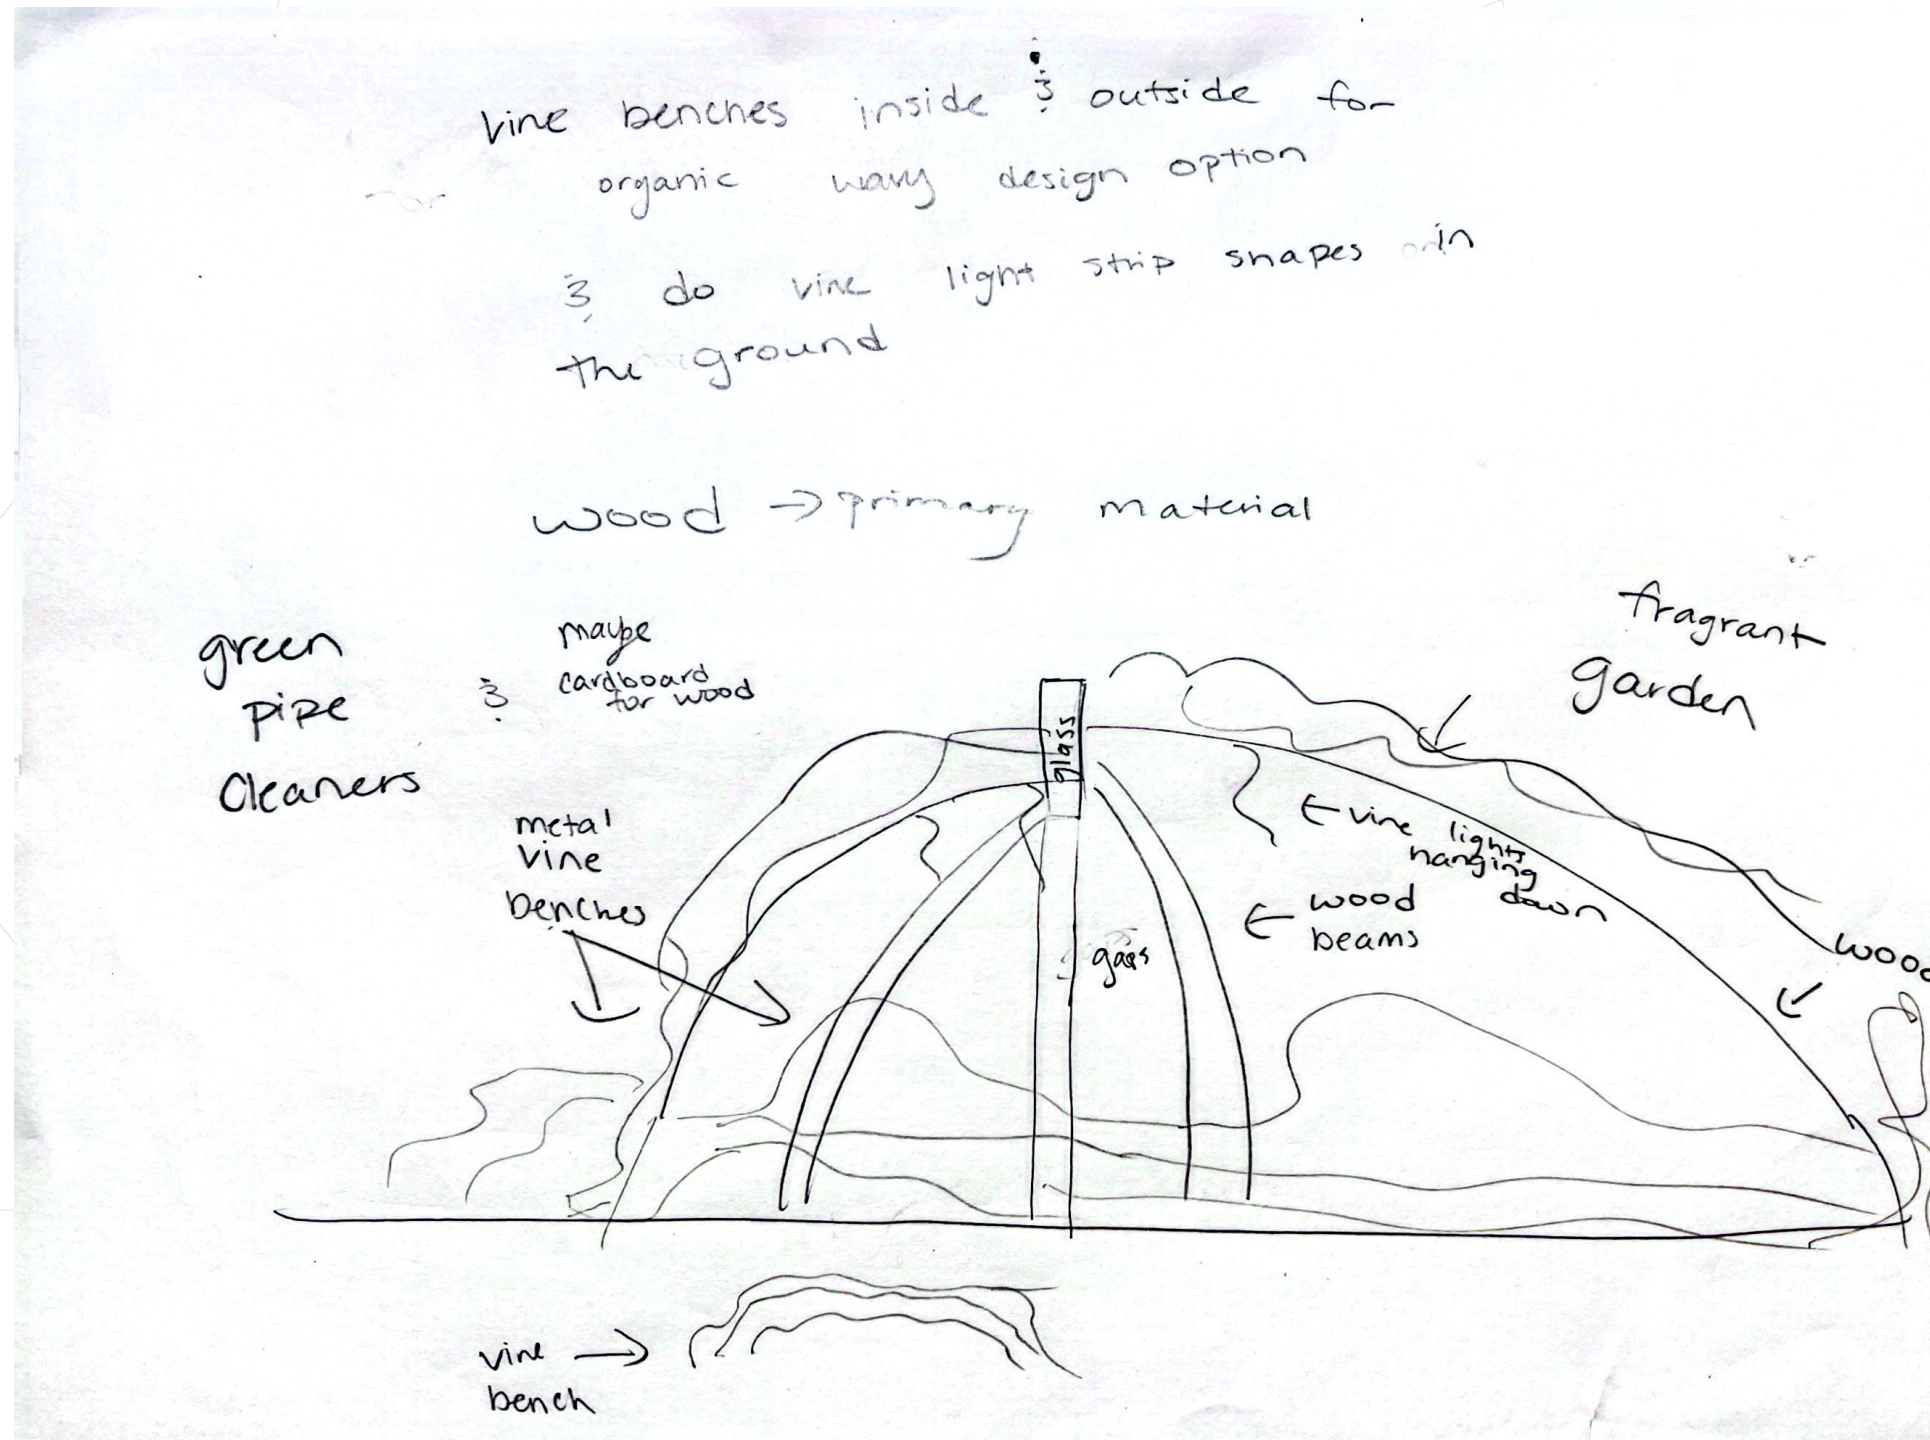 Vine benches inside & outside for
organic wavy design option
& do vine light strip shapes in
the ground
wood → primary material
green
pipe
Cleaners
&
maybe
cardboard
for wood
fragrant
garden
glass
metal
vine
benches
← vine lights
hanging
down
← wood
beams
gaps
wood
vine →
bench